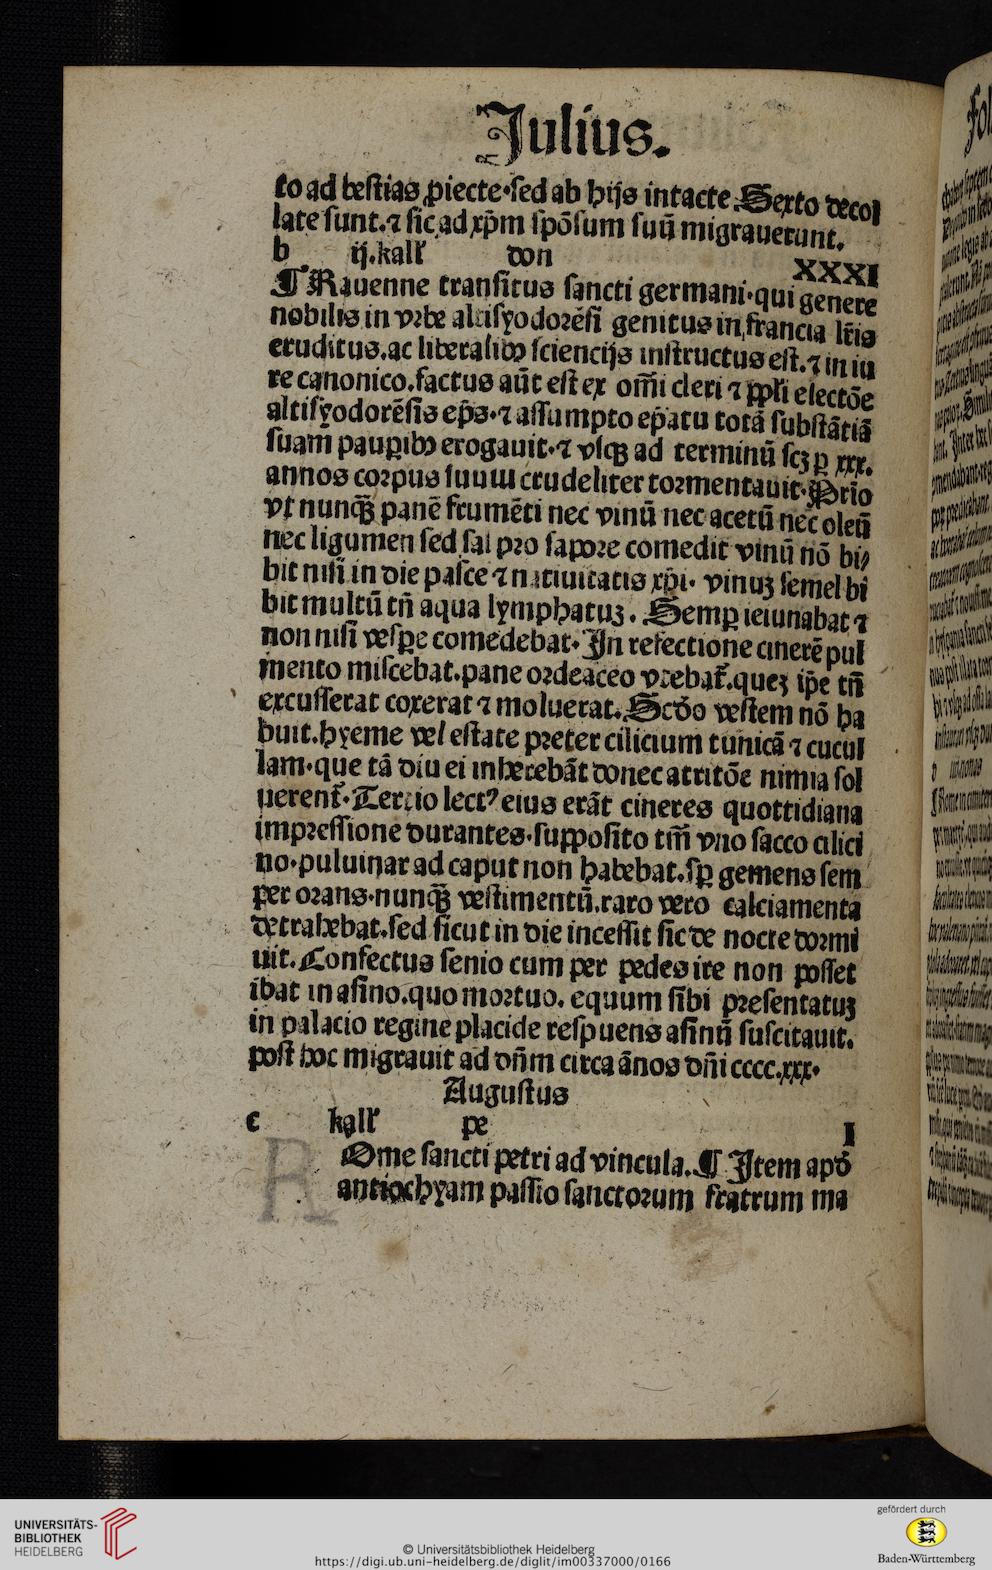 Julius.
to ad bestias ꝓiecte·sed ab hijs intacte. Sexto decol
late sunt.⁊ sic ad xp̄m spōsum suū migrauerunt.
b ij.kall' don XXXI
¶ Rauenne transitus sancti germani·qui genere
nobilis in vrbe altisyodorēsi genitus in francia lr̄is
eruditus.ac liberalibꝫ sciencijs instructus est.⁊ in iu
re canonico.factus aūt est ex om̄i cleri ⁊ ppl'i electōe
altisyodorēsis ep̄s·⁊ assumpto ep̄atu totā substātiā
suam pauꝑibꝫ erogauit·⁊ vsqꝫ ad terminū scꝫ ꝑ xxx.
annos corpus suum crudeliter tormentauit·Prīo
vt nunqꝫ̄ panē frumēti nec vinū nec acetū nec oleū
nec ligumen sed sal pro sapore comedit vinū nō bi/
bit nisi in die pasce ⁊ natiuitatis xp̄i· vinuꝫ semel bi
bit multū tn̄ aqua lymphatuꝫ. Semꝑ ieiunabat ⁊
non nisi vesꝑe comedebat· In refectione cinerē pul
mento miscebat.pane ordeaceo vtebat̄.queꝫ ip̄e tn̄
excusserat coxerat ⁊ moluerat. Scd̄o vestem nō ha
buit.hyeme vel estate preter cilicium tunicā ⁊ cucul
lam·que tā diu ei inherebāt donec atritōe nimia sol
uerent̄· Tertio lectꝰ eius erāt cineres quottidiana
impressione durantes·supposito tm̄ vno sacco cilici
no·puluinar ad caput non habebat.sꝑ gemens sem
per orans·nunqꝫ̄ vestimentū.raro vero calciamenta
detrahebat.sed sicut in die incessit sic de nocte dormi
uit. Confectus senio cum per pedes ire non posset
ibat in asino.quo mortuo. equum sibi presentatuꝫ
in palacio regine placide respuens asinū suscitauit.
post hoc migrauit ad dn̄m circa ānos dn̄i cccc.xxx·
Augustus
c kall' pe I
R Ome sancti petri ad vincula. ¶ Item apd̄
antiochyam passio sanctorum fratrum ma
UNIVERSITÄTS-
BIBLIOTHEK
HEIDELBERG
© Universitätsbibliothek Heidelberg
https://digi.ub.uni-heidelberg.de/diglit/im00337000/0166
gefördert durch
Baden-Württemberg